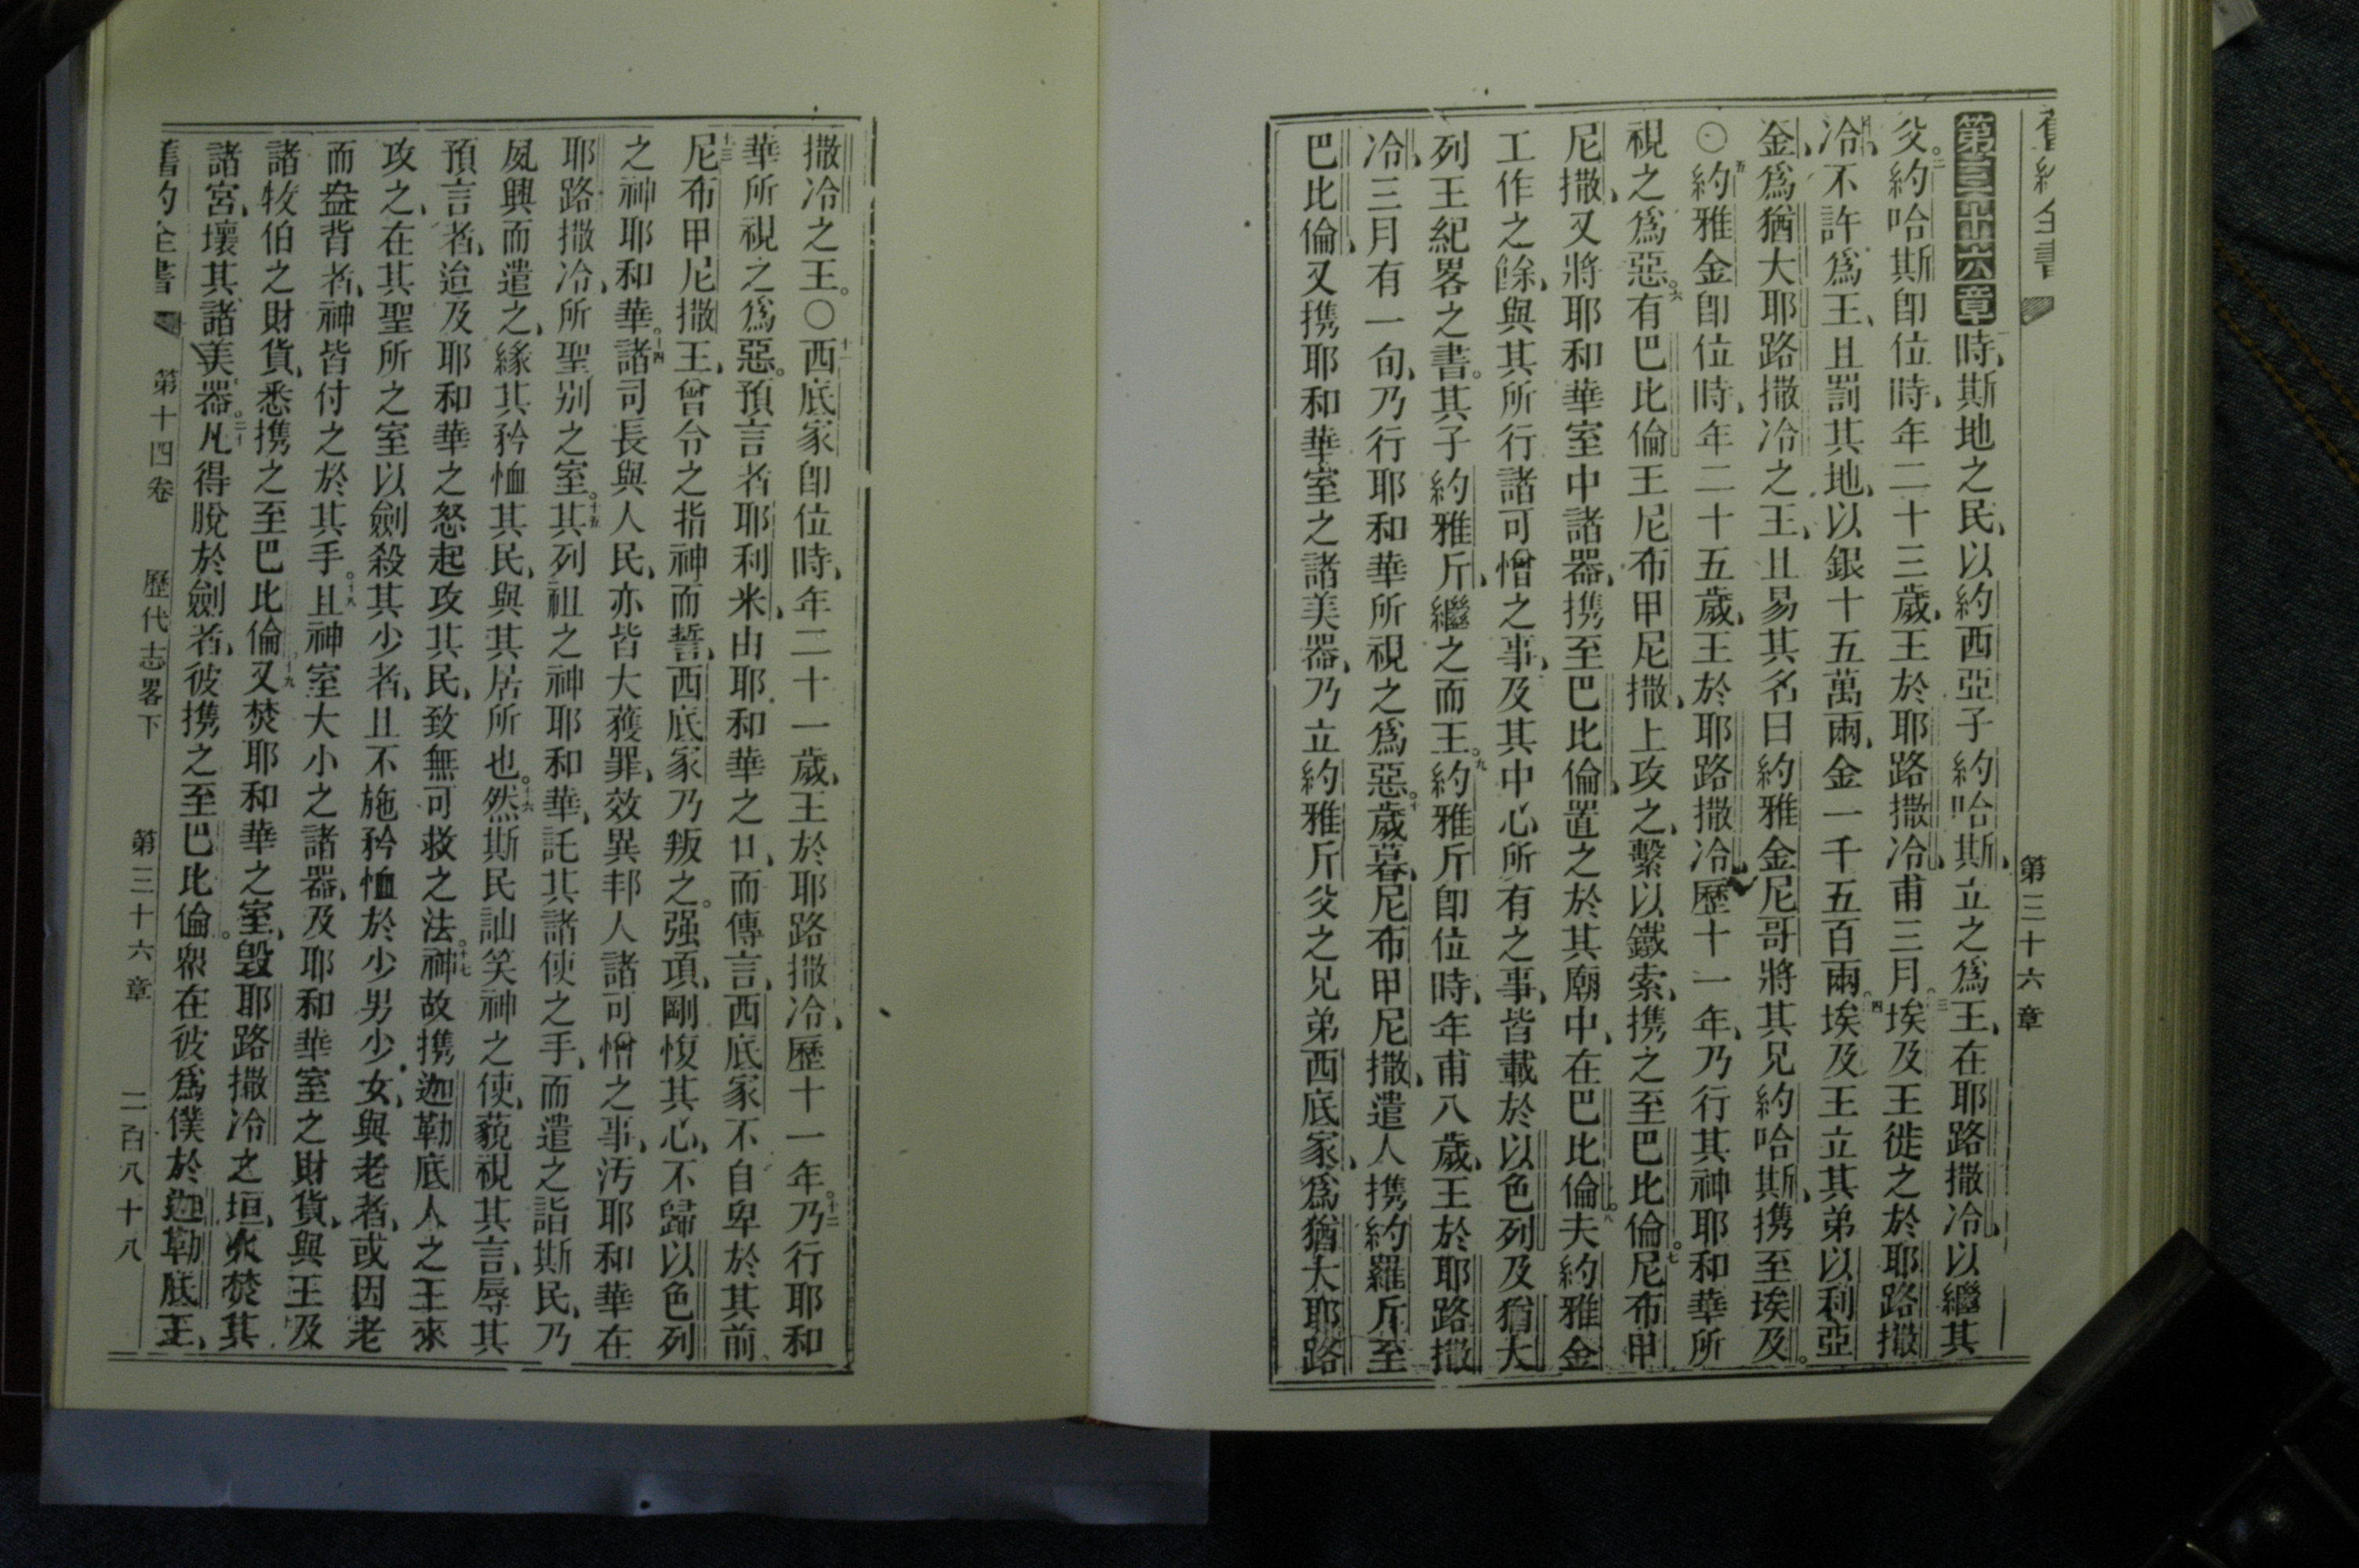 舊約全書 第三十六章
第三十六章 時、斯地之民、以約西亞子約哈斯、立之爲王、在耶路撒冷、以繼其
父。二約哈斯卽位時、年二十三歲、王於耶路撒冷、甫三月。三埃及王徙之於耶路撒
冷、不許爲王、且罰其地、以銀十五萬兩、金一千五百兩。四埃及王立其弟以利亞
金、爲猶大耶路撒冷之王、且易其名曰約雅金、尼哥將其兄約哈斯、携至埃及。
〇五約雅金卽位時、年二十五歲、王於耶路撒冷、歷十一年、乃行其神耶和華所
視之爲惡。六有巴比倫王尼布甲尼撒、上攻之、繫以鐵索、携之至巴比倫。七尼布甲
尼撒、又將耶和華室中諸器、携至巴比倫、置之於其廟中、在巴比倫。八夫約雅金
工作之餘、與其所行諸可憎之事、及其中心所有之事、皆載於以色列及猶大
列王紀畧之書。其子約雅斤、繼之而王。九約雅斤卽位時、年甫八歲、王於耶路撒
冷、三月有一旬、乃行耶和華所視之爲惡。十歲暮、尼布甲尼撒、遣人携約雅斤至
巴比倫、又携耶和華室之諸美器、乃立約雅斤父之兄弟西底家、爲猶大耶路
撒冷之王。〇十一西底家卽位時、年二十一歲、王於耶路撒冷、歷十一年。十二乃行耶和
華所視之爲惡。預言者耶利米、由耶和華之口、而傳言、西底家不自卑於其前、
十三尼布甲尼撒王、曾令之指神而誓、西底家乃叛之。强項、剛愎其心、不歸以色列
之神耶和華。十四諸司長與人民、亦皆大獲罪、效異邦人諸可憎之事、汚耶和華在
耶路撒冷、所聖别之室。十五其列祖之神耶和華、託其諸使之手、而遣之詣斯民、乃
夙興而遣之、緣其矜恤其民、與其居所也。十六然斯民訕笑神之使、藐視其言、辱其
預言者、迨及耶和華之怒起攻其民、致無可救之法。十七神故携迦勒底人之王來
攻之、在其聖所之室以劍殺其少者、且不施矜恤於少男少女、與老者、或因老
而盆背者、神皆付之於其手。十八且神室大小之諸器、及耶和華室之財貨、與王及
諸牧伯之財貨、悉携之至巴比倫。十九又焚耶和華之室、毀耶路撒冷之垣、火焚其
諸宮、壞其諸美器。二十凡得脫於劍者、彼携之至巴比倫。衆在彼爲僕於迦勒底王、
舊約全書 第十四卷 歷代志畧下 第三十六章 二百八十八